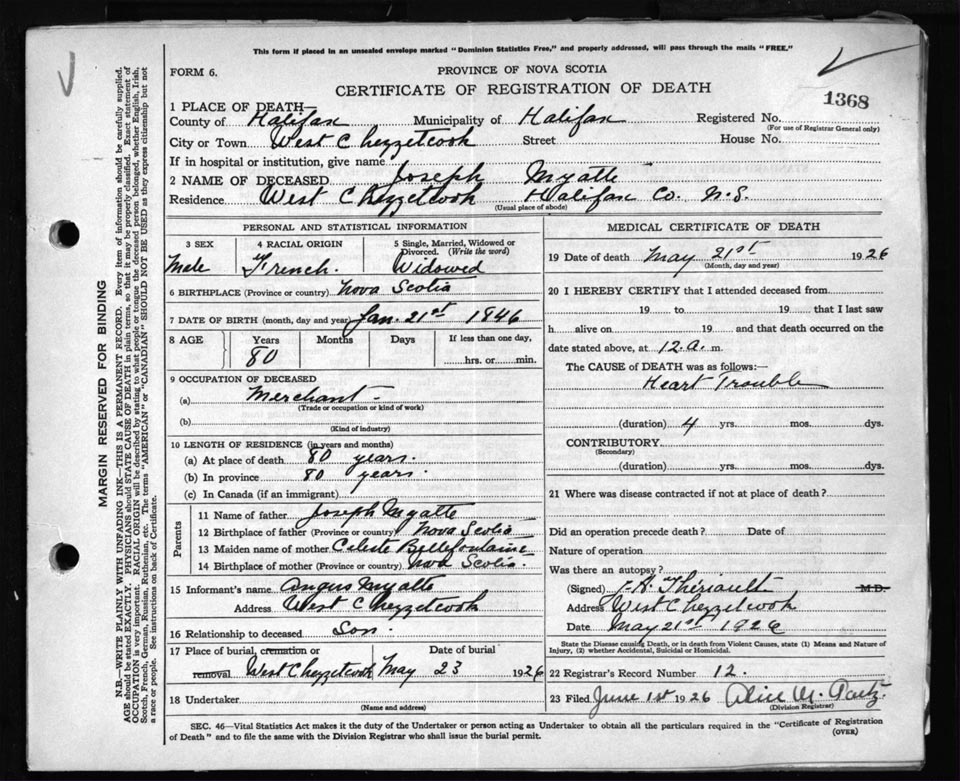 This form if placed in an unsealed envelope marked "Dominion Statistics Free," and properly addressed, will pass through the mails "FREE."
FORM 6.
PROVINCE OF NOVA SCOTIA
CERTIFICATE OF REGISTRATION OF DEATH
1368
1 PLACE OF DEATH—
County of Halifax Municipality of Halifax Registered No.
(For use of Registrar General only)
City or Town West Chezzetcook Street House No.
If in hospital or institution, give name
2 NAME OF DECEASED Joseph Myatte
Residence West Chezzetcook Halifax Co. N.S.
(Usual place of abode)
PERSONAL AND STATISTICAL INFORMATION
3 SEX 4 RACIAL ORIGIN 5 Single, Married, Widowed or Divorced. (Write the word)
Male French. Widowed
6 BIRTHPLACE (Province or country) Nova Scotia
7 DATE OF BIRTH (month, day and year) Jan. 21st 1846
8 AGE Years Months Days If less than one day,
80 hrs. or min.
9 OCCUPATION OF DECEASED
(a) Merchant
(Trade or occupation or kind of work)
(b)
(Kind of industry)
10 LENGTH OF RESIDENCE (in years and months)
(a) At place of death 80 years.
(b) In province 80 years.
(c) In Canada (if an immigrant)
Parents
11 Name of father Joseph Myatte
12 Birthplace of father (Province or country) Nova Scotia
13 Maiden name of mother Celeste Bellefontaine
14 Birthplace of mother (Province or country) Nova Scotia.
15 Informant's name Angus Myatte
Address West Chezzetcook
16 Relationship to deceased Son.
17 Place of burial, cremation or removal Date of burial
West Chezzetcook May 23 1926
18 Undertaker
(Name and address)
MEDICAL CERTIFICATE OF DEATH
19 Date of death May 21st 1926
(Month, day and year)
20 I HEREBY CERTIFY that I attended deceased from
19 to 19 that I last saw
h alive on 19 and that death occurred on
date stated above, at 12.a.m.
The CAUSE of DEATH was as follows:—
Heart Trouble
(duration) 4 yrs. mos. dys.
CONTRIBUTORY
(Secondary)
(duration) yrs. mos. dys.
21 Where was disease contracted if not at place of death?
Did an operation precede death? Date of
Nature of operation
Was there an autopsy?
(Signed) J. A. Thériault M.D.
Address West Chezzetcook
Date May 21st 1926
State the Disease causing Death, or in death from Violent Causes, state (1) Means and Nature of
Injury, (2) whether Accidental, Suicidal or Homicidal.
22 Registrar's Record Number 12.
23 Filed June 1st 1926
(Division Registrar)
SEC. 46—Vital Statistics Act makes it the duty of the Undertaker or person acting as Undertaker to obtain all the particulars required in the "Certificate of Registration
of Death" and to file the same with the Division Registrar who shall issue the burial permit.
(OVER)
MARGIN RESERVED FOR BINDING
N.B.—WRITE PLAINLY WITH UNFADING INK—THIS IS A PERMANENT RECORD. Every item of information should be carefully supplied.
AGE should be stated EXACTLY. PHYSICIANS should STATE CAUSE OF DEATH in plain terms, so that it may be properly classified. Exact statement of
OCCUPATION is very important. RACIAL ORIGIN will be described by stating to what people or tongue the deceased person belonged, whether English, Irish,
Scotch, French, German, Russian, Ruthenian, etc. The terms "AMERICAN" or "CANADIAN" SHOULD NOT BE USED as they express citizenship but not
a race or people. See instructions on back of Certificate.